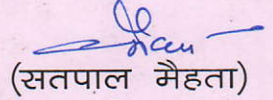 (सतपाल मैहता)